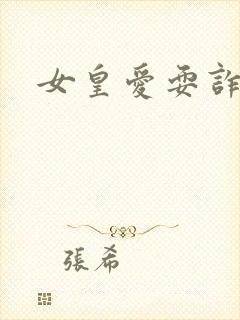 女皇愛耍詐
張希